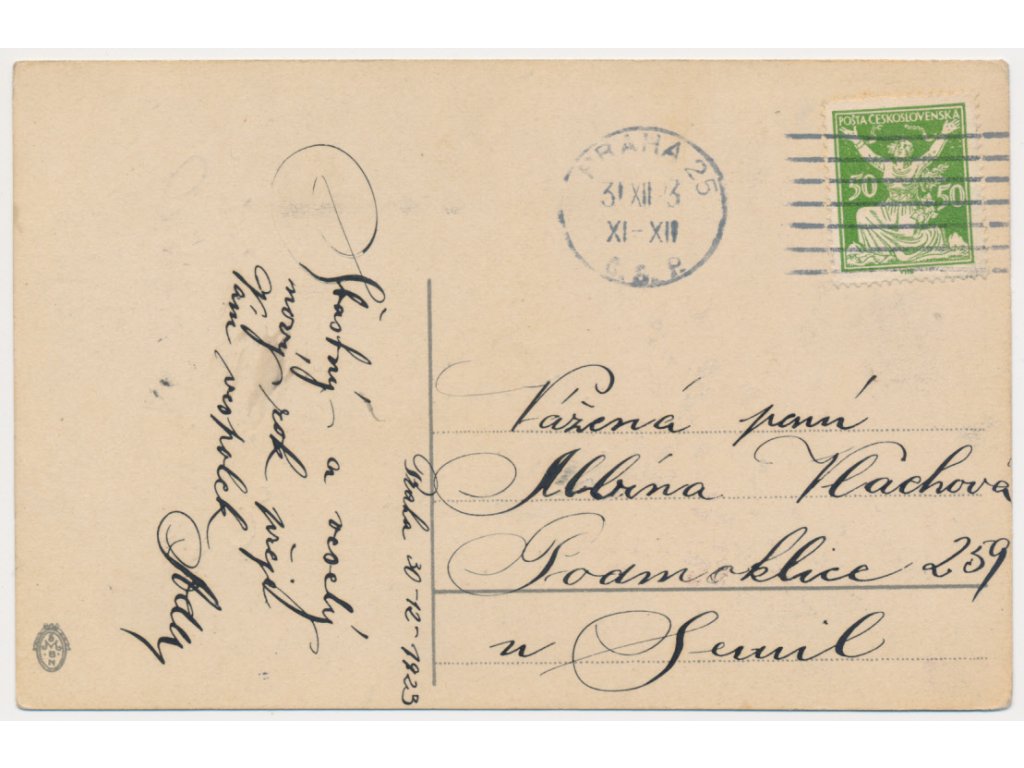 POŠTA ČESKOSLOVENSKÁ
50 50
PRAHA 25
31 XII 23
XI-XII
Č. S. P.
Šťastný a veselý
nový rok přejí
Vám vespolek
Praha 30-12-1923
Vážená paní
Albína Vlachová
Podmoklice 259
u Semil